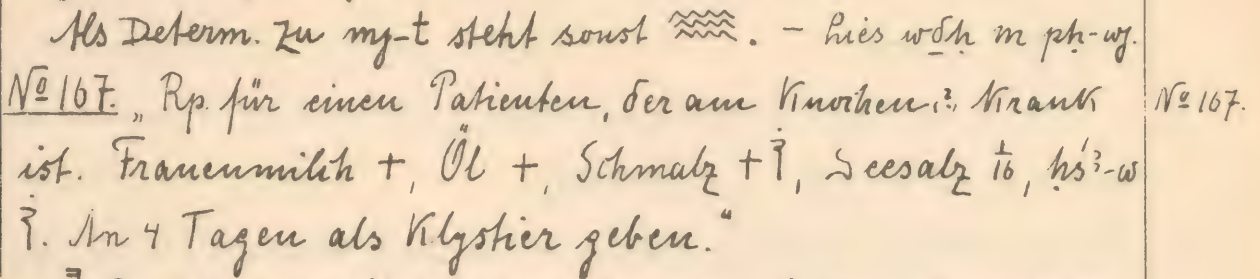 Als Determ. zu mj-t steht sonst 𓈗. – Lies wdḥ m pḥ-wj.
No 167. „Rp. für einen Patienten, der am Knochen? krank No 167.
ist. Frauenmilch +, Öl +, Schmalz +, Seesalz 1/16, ḥs3-w
. An 4 Tagen als Klystier geben.“